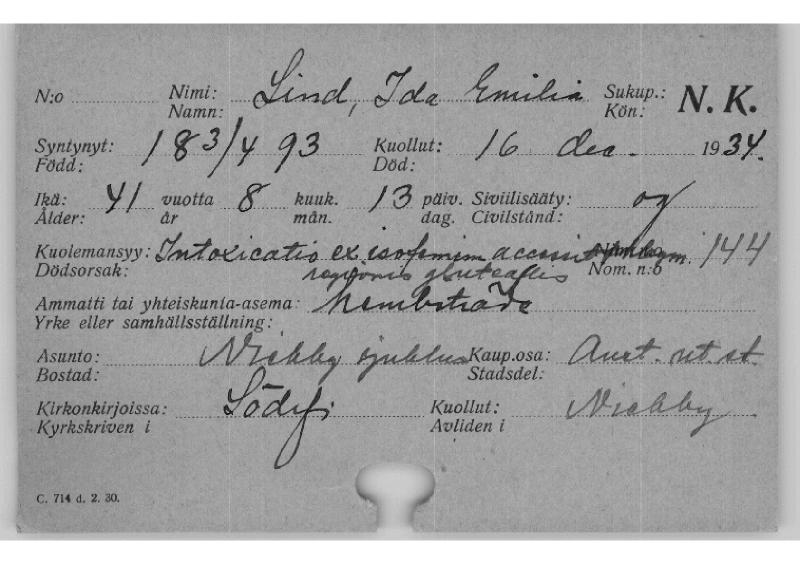 N:o Nimi: Namn: Lind, Ida Emilia Sukup.: Kön: N. K.
Syntynyt: Född: 18 3/4 93 Kuollut: Död: 16 dec. 1934.
Ikä: Ålder: 41 vuotta år 8 kuuk. mån. 13 päiv. dag. Siviilisääty: Civilstånd: og
Kuolemansyy: Dödsorsak: Intoxicatio ex Nom. n:o 144
regionis glutealis
Ammatti tai yhteiskunta-asema: Yrke eller samhällsställning: Hembiträde
Asunto: Bostad: Nickby sjukhus Kaup.osa: Stadsdel:
Kirkonkirjoissa: Kyrkskriven i Södr. Kuollut: Avliden i Nickby
C. 714 d. 2. 30.